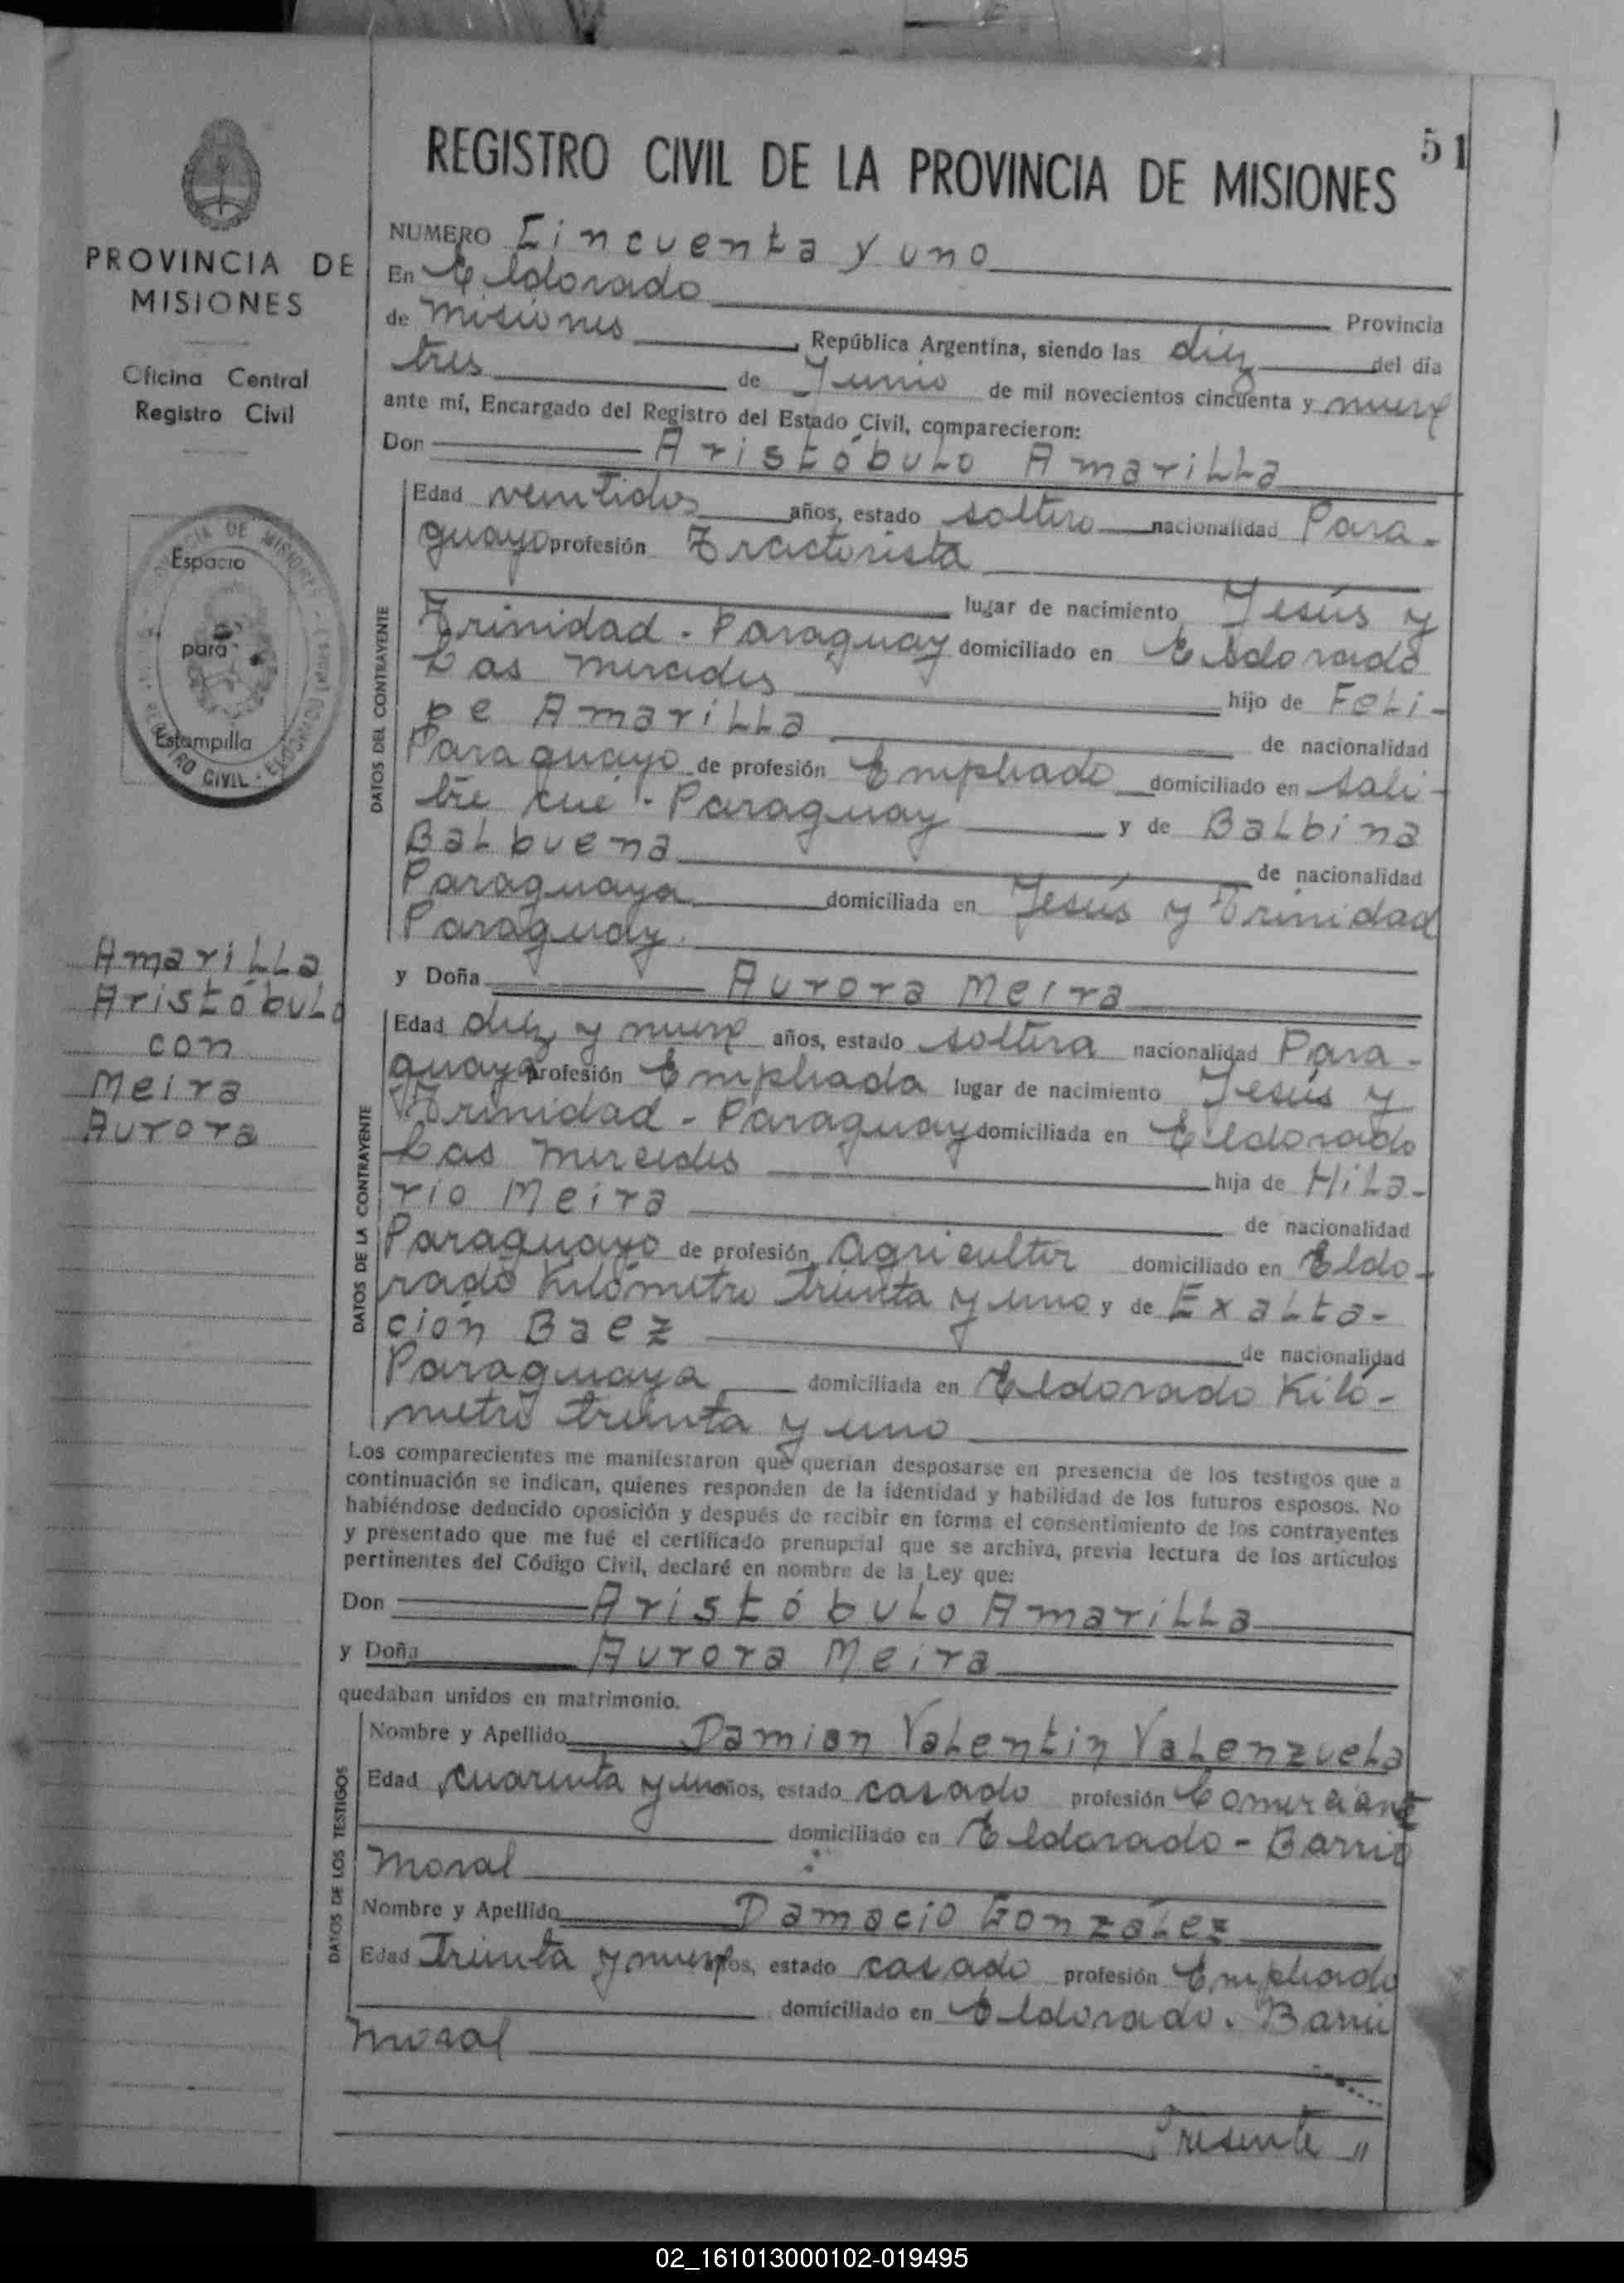 51
REGISTRO CIVIL DE LA PROVINCIA DE MISIONES
PROVINCIA DE
MISIONES
Oficina Central
Registro Civil
Espacio
para
Estampilla
Amarilla
Aristóbulo
con
Meira
Aurora
NUMERO Cincuenta y uno
En Eldorado Provincia
de Misiones, República Argentina, siendo las diez del día
tres de Junio de mil novecientos cincuenta y nueve
ante mí, Encargado del Registro del Estado Civil, comparecieron:
Don Aristóbulo Amarilla
DATOS DEL CONTRAYENTE
Edad veintidos años, estado soltero nacionalidad Para-
guayo profesión Tractorista
lugar de nacimiento Jesús y
Trinidad - Paraguay domiciliado en Eldorado
Las Mercedes hijo de Feli-
pe Amarilla de nacionalidad
Paraguayo de profesión Empleado domiciliado en Sali-
tre cué - Paraguay y de Balbina
Balbuena de nacionalidad
Paraguaya domiciliada en Jesús y Trinidad
Paraguay.
y Doña Aurora Meira
DATOS DE LA CONTRAYENTE
Edad diez y nueve años, estado soltera nacionalidad Para-
guaya profesión Empleada lugar de nacimiento Jesús y
Trinidad - Paraguay domiciliada en Eldorado
Las Mercedes hija de Hila-
rio Meira de nacionalidad
Paraguayo de profesión Agricultor domiciliado en Eldo-
rado Kilómetro treinta y uno y de Exalta-
ción Baez de nacionalidad
Paraguaya domiciliada en Eldorado Kiló-
metro treinta y uno
Los comparecientes me manifestaron que querían desposarse en presencia de los testigos que a
continuación se indican, quienes responden de la identidad y habilidad de los futuros esposos. No
habiéndose deducido oposición y después de recibir en forma el consentimiento de los contrayentes
y presentado que me fué el certificado prenupcial que se archiva, previa lectura de los artículos
pertinentes del Código Civil, declaré en nombre de la Ley que:
Don Aristóbulo Amarilla
y Doña Aurora Meira
quedaban unidos en matrimonio.
DATOS DE LOS TESTIGOS
Nombre y Apellido Damian Valentin Valenzuela
Edad cuarenta y un años, estado casado profesión Comerciante
domiciliado en Eldorado - Barrio
Moral
Nombre y Apellido Damacio González
Edad Treinta y nueve años, estado casado profesión Empleado
domiciliado en Eldorado. Barrio
Moral
Presente "
02_161013000102-019495